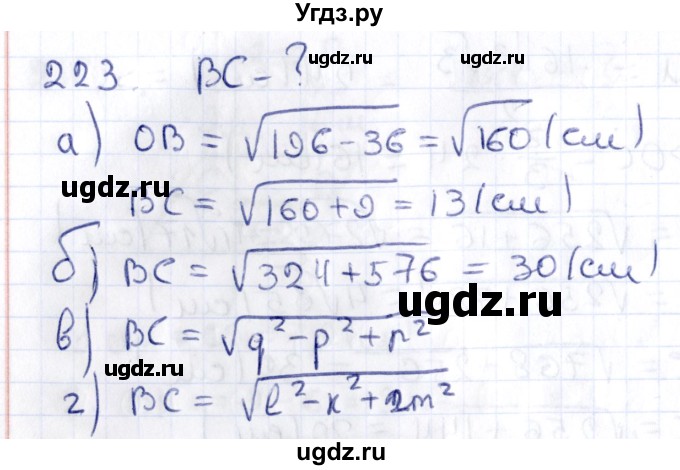 Угдз.ру
223. BC - ?
ugdz.ru ugdz.ru
а) OB = √196-36 = √160 (см)
ugdz.ru
BC = √160+9 = 13 (см)
б) BC = √324+576 = 30 (см)
ugdz.ru
в) BC = √q²-p²+n²
ugdz.ru
г) BC = √l²-k²+2m²
ugdz.ru ugdz.ru